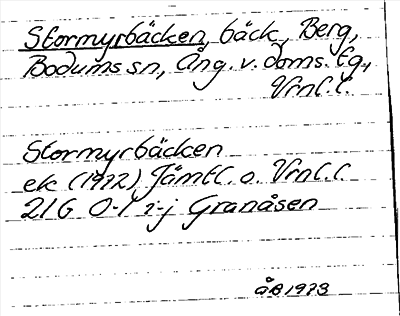 Stormyrbäcken, bäck, Berg,
Bodums sn, Ång. v. doms. tg,
Vrnl. l.
Stormyrbäcken
ek (1972) Jämtl. o. Vrnl. l.
21G 0-1 i-j Granåsen
åB 1973